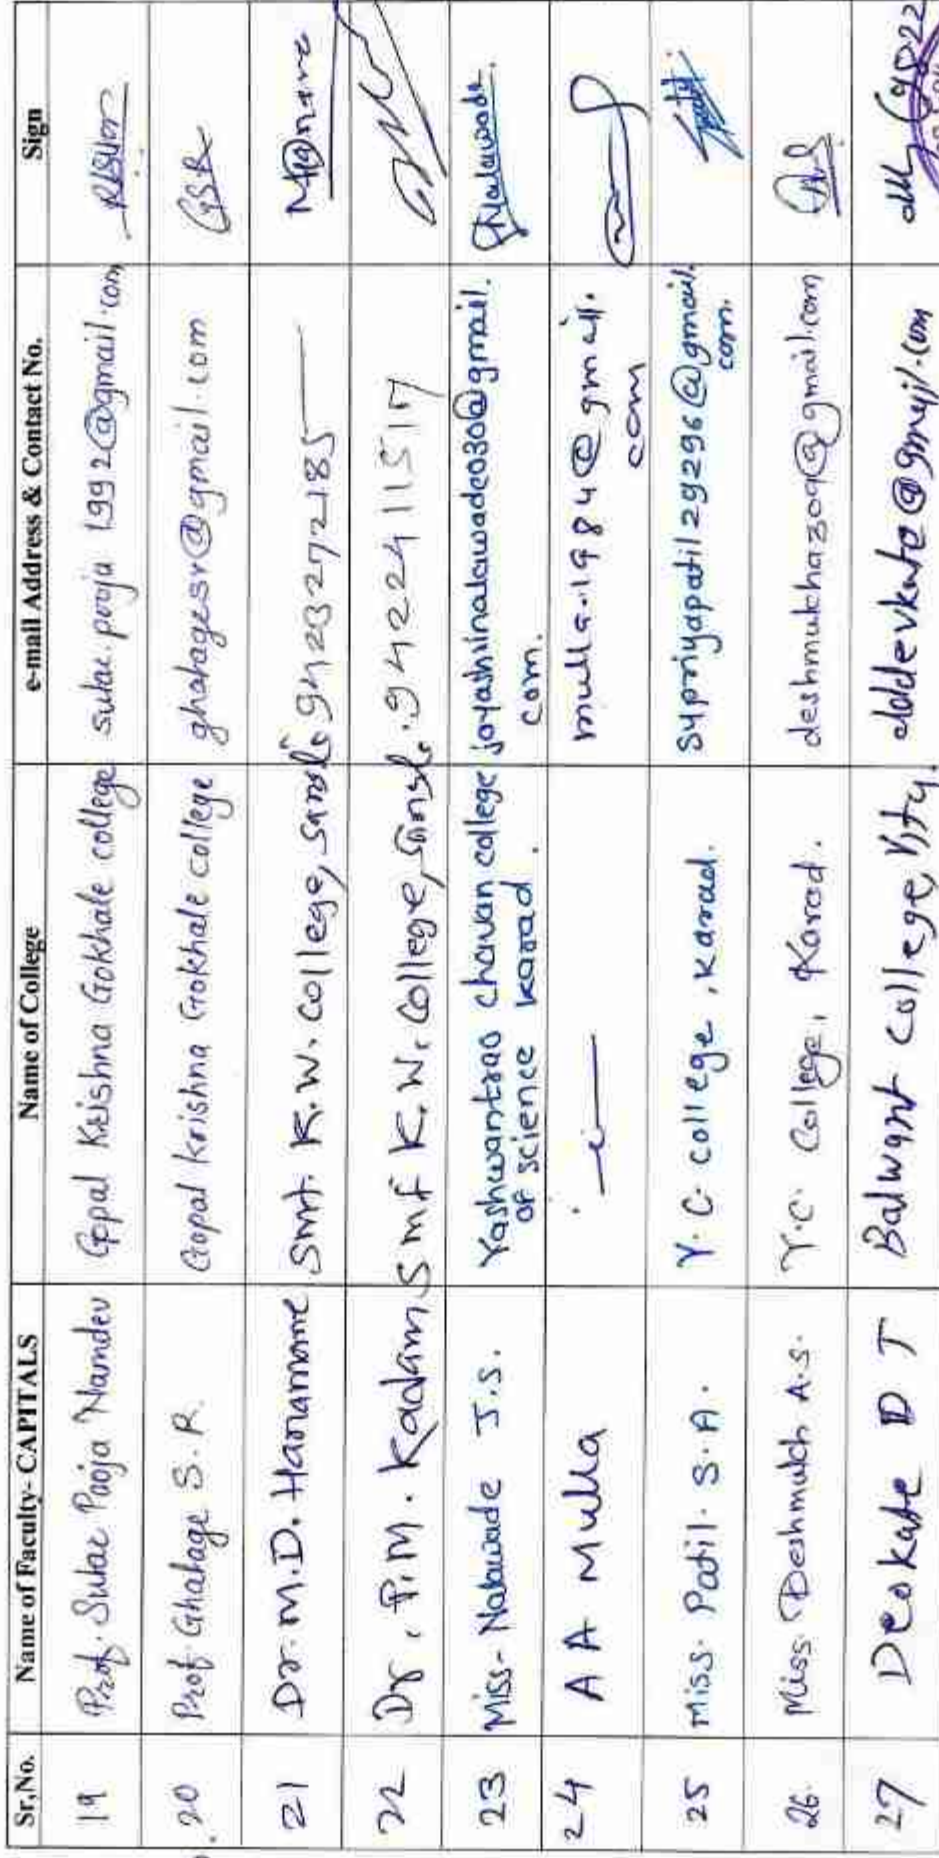 Sr,No. Name of Faculty- CAPITALS Name of College e-mail Address & Contact No. Sign
19 Prof. Sutar Pooja Namdev Gopal Krishna Gokhale college sutar.pooja1992@gmail.com
20 Prof. Ghatage S. R. Gopal Krishna Gokhale college ghatagesr@gmail.com
21 Dr. M.D. Hanamane Smt. K.W. College, Sangli 9423272185
22 Dr. P.M. Kadam Smt K.W. College, Sangli. 9422411517
23 Miss- Nalawade J.S. Yashwantrao chavan college joyashinalawade030@gmail.
of science karad. com.
24 A A Mulla —"— mulla.1984@gmail.
com
25 Miss. Patil. S. A. Y. C. college, Karad. supriyapatil29296@gmail.
com.
26. Miss. Deshmukh A.S. Y.C. College, Karad. deshmukha309@gmail.com
27 Deokate D T Balwant College, Vita. dddevkate@gmail.com